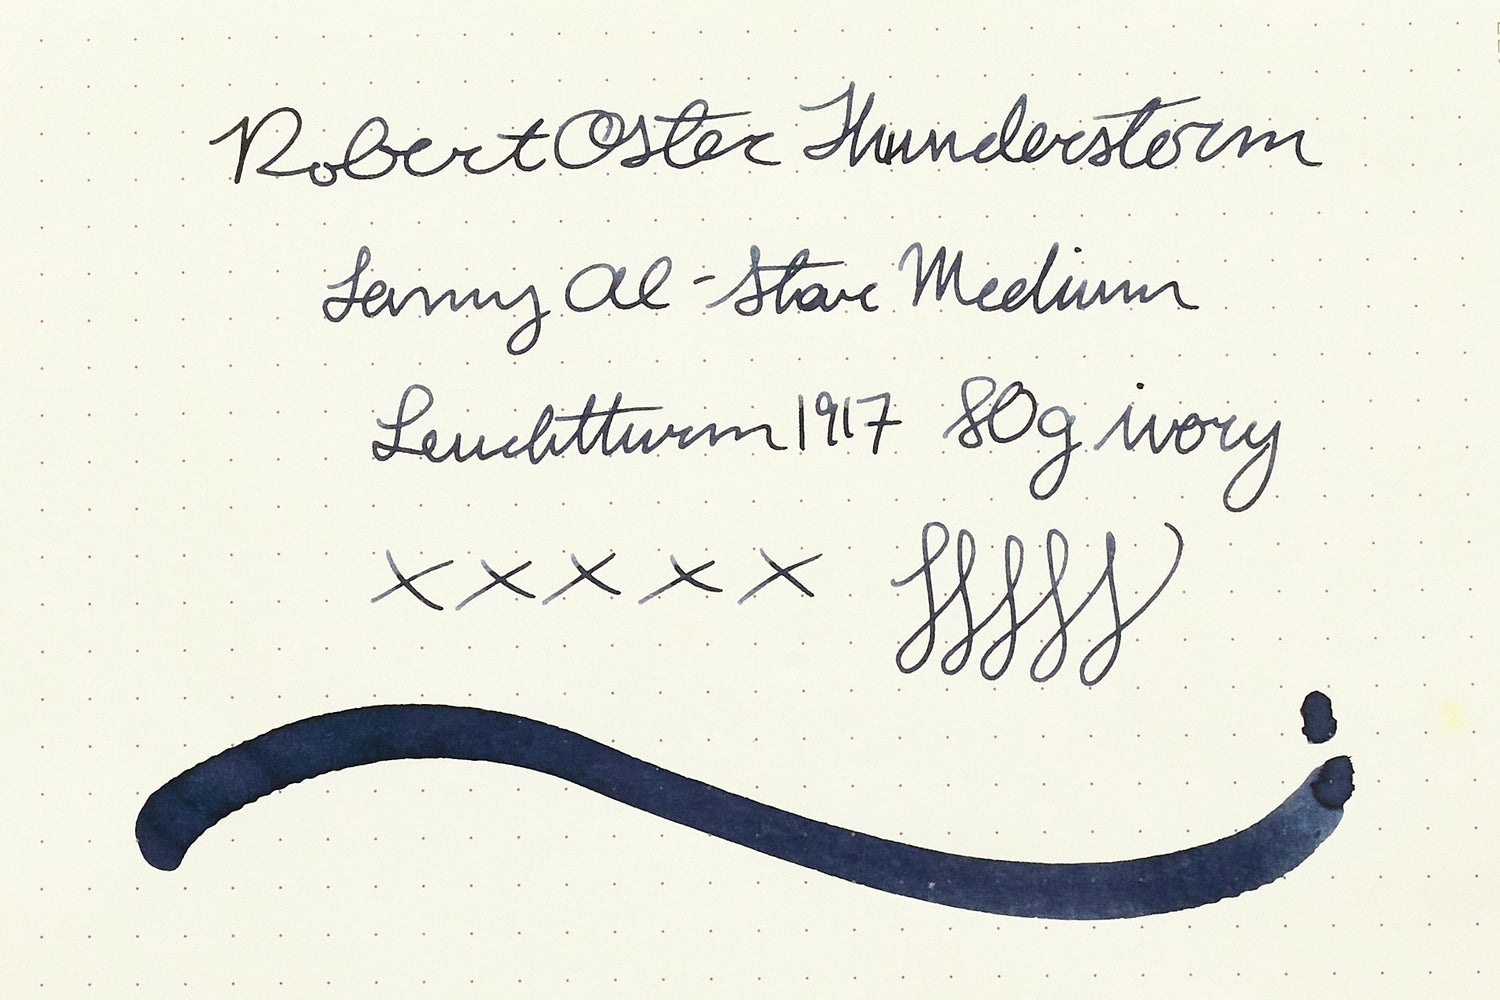 Robert Oster Thunderstorm
Lamy Al-Star Medium
Leuchtturm1917 80g ivory
x x x x x